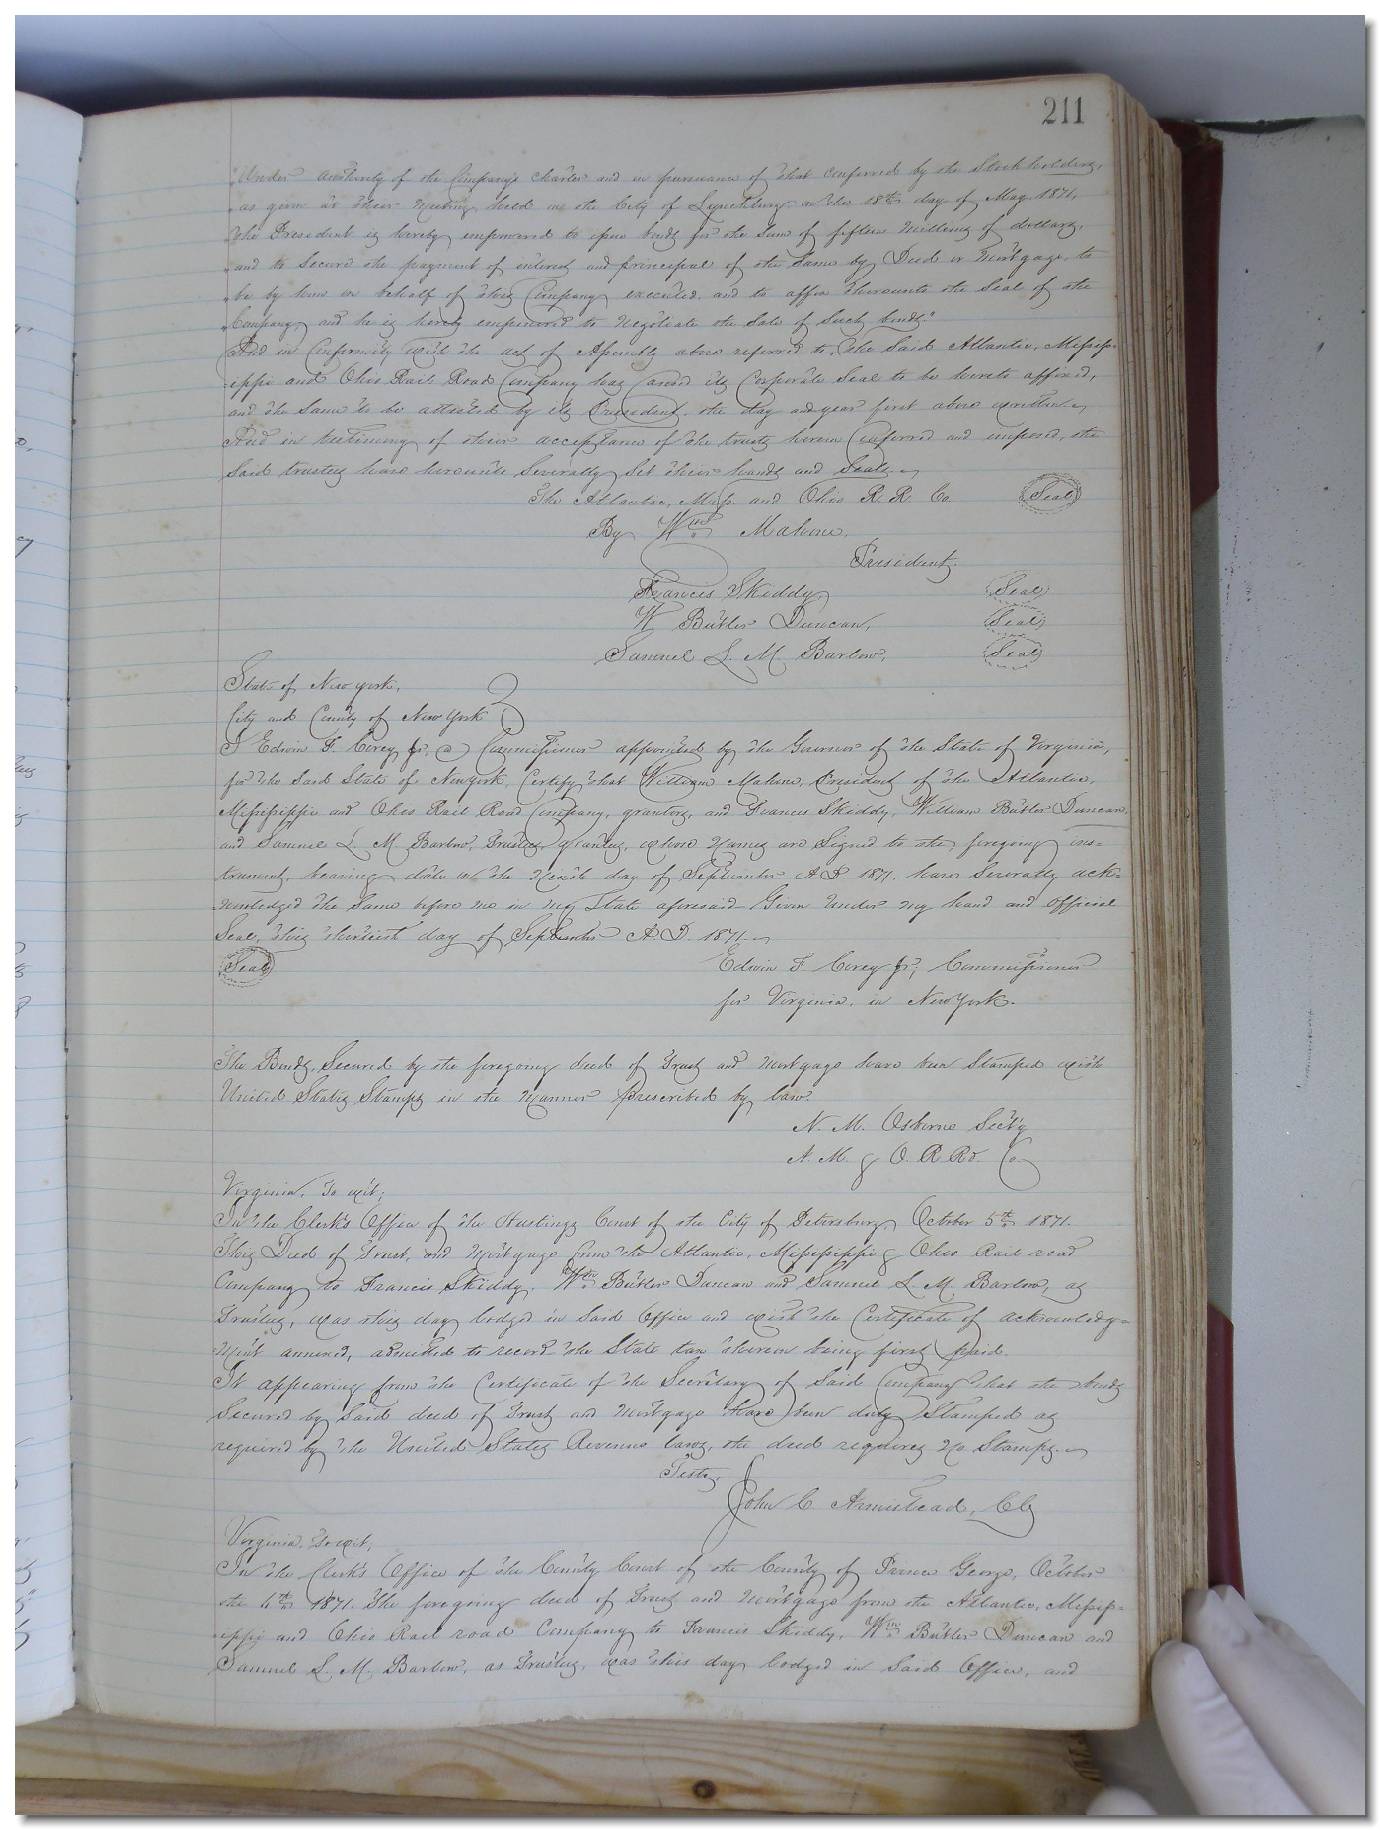 211
"Under authority of the Company's Charter and in pursuance of that conferred by the Stockholders,
"as given in their meeting held in the City of Lynchburg on the 18th day of May 1871,
"the President is hereby empowered to issue bonds for the sum of fifteen millions of dollars,
"and to secure the payment of interest and principal of the same by Deed or Mortgage, to
"be by him in behalf of this Company executed, and to affix thereunto the Seal of the
"Company, and he is hereby empowered to negotiate the Sale of Such bonds."
And in Conformity with the act of Assembly above referred to, the Said Atlantic, Missis-
-ippi and Ohio Rail Road Company has Caused its Corporate Seal to be hereto affixed,
and the Same to be attested by its President, the day and year first above written
And in testimony of their acceptance of the trusts herein Conferred and imposed, the
Said trustees have hereunto Severally Set their hands and Seals.
The Atlantic, Miss. and Ohio R. R. Co. Seal
By Wm Mahone,
President,
Frances Skiddy Seal
W Butler Duncan, Seal
Samuel L. M. Barlow, Seal
State of New York,
City and County of New York
I Edwin F. Corey Jr, a Commissioner appointed by the Governor of the State of Virginia,
for the Said State of New York, Certify that William Mahone, President of the Atlantic,
Mississippi and Ohio Rail Road Company, grantor, and Francis Skiddy, William Butler Duncan,
and Samuel L. M. Barlow, Trustees, Grantees, whose Names are Signed to the foregoing ins=
trument, bearing date on the day of September A D 1871. have Severally ack=
nowledged the Same before me in my State aforesaid - Given Under my hand and Official
Seal, this thirtieth day of September A. D. 1871
Seal Edwin F Corey Jr, Commissioner
for Virginia, in New York.
The Bonds, Secured by the foregoing deed of Trust and Mortgage have been Stamped with
United States Stamps in the Manner prescribed by law.
N. M. Osborne Sect'y
A. M. & O. R Rd. Co
Virginia, To wit;
In the Clerk's Office of the Hustings Court of the City of Petersburg, October 5th 1871.
This Deed of Trust, and Mortgage from the Atlantic, Mississippi & Ohio Rail road
Company to Francis Skiddy, Wm Butler Duncan and Samuel L. M. Barlow, as
Trustees, was this day lodged in Said Office and with the Certificate of acknowledg=
ment annexed, admitted to record the State tax thereon being first paid.
It appearing from the Certificate of the Secretary of Said Company that the bonds
Secured by Said deed of Trust and Mortgage have been duly Stamped as
required by the United States Revenue laws, the deed requires No Stamps.
Teste,
John C Armistead, Clk
Virginia, To wit;
In the Clerk's Office of the County Court of the County of Prince George, October
the 6th 1871. The foregoing deed of Trust and Mortgage from the Atlantic, Missis=
-ippi and Ohio Rail road Company to Francis Skiddy, Wm Butler Duncan and
Samuel L. M. Barlow, as Trustees, was this day lodged in Said Office, and